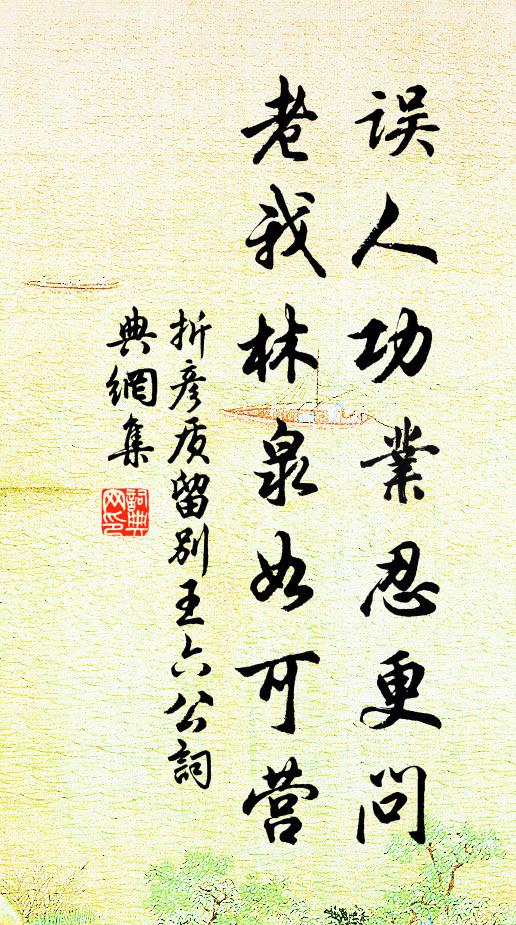 误人功業忍更问
老我林泉如可营
折彦质留别王六公詞
典網集
詞典
网印